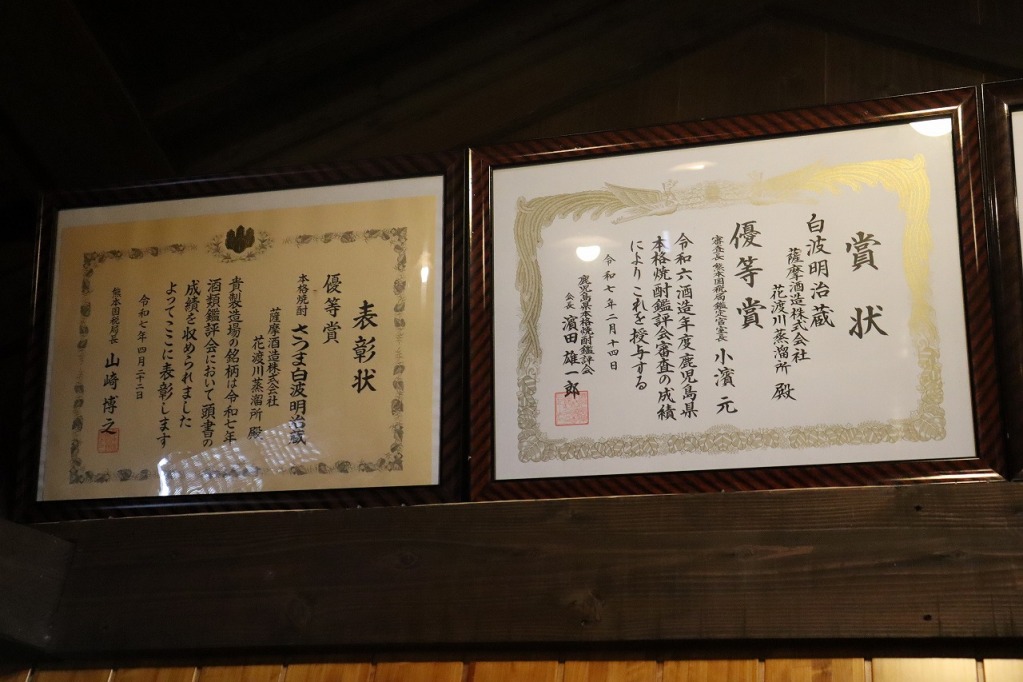 表彰状
優等賞
本格焼酎 さつま白波明治蔵
薩摩酒造株式会社
花渡川蒸溜所 殿
貴製造場の銘柄は令和七年
酒類鑑評会において頭書の
成績を収められました
よってここに表彰します
令和七年四月二十二日
熊本国税局長 山崎博之
賞状
白波明治蔵
薩摩酒造株式会社
花渡川蒸溜所 殿
優等賞
審査長 熊本国税局鑑定官室長 小濱元
令和六酒造年度鹿児島県
本格焼酎鑑評会審査の成績
によりこれを授与する
令和七年二月十四日
鹿児島県本格焼酎鑑評会
会長 濵田雄一郎